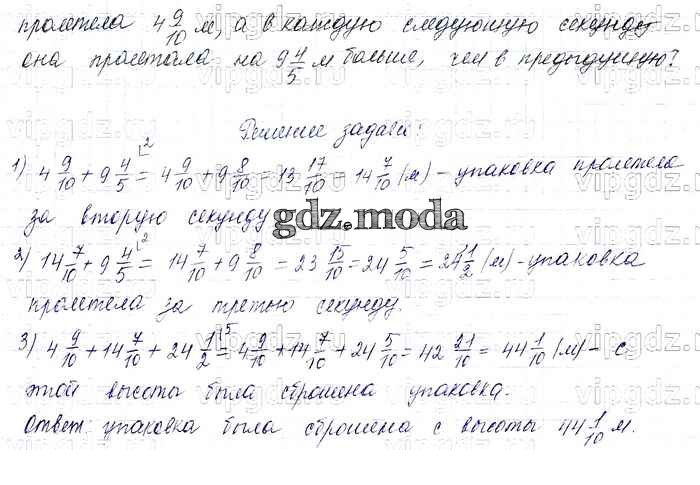 пролетела 4 9/10 м, а в каждую следующую секунду
она пролетала на 9 4/5 м больше, чем в предыдущую?
Решение задачи:
1) 4 9/10 + 9 4/5 = 4 9/10 + 9 8/10 = 13 17/10 = 14 7/10 (м) – упаковка пролетела
за вторую секунду
gdz.moda
2) 14 7/10 + 9 4/5 = 14 7/10 + 9 8/10 = 23 15/10 = 24 5/10 = 24 1/2 (м) – упаковка
пролетела за третью секунду.
3) 4 9/10 + 14 7/10 + 24 1/2 = 4 9/10 + 14 7/10 + 24 5/10 = 42 21/10 = 44 1/10 (м) – с
этой высоты была сброшена упаковка.
Ответ: упаковка была сброшена с высоты 44 1/10 м.